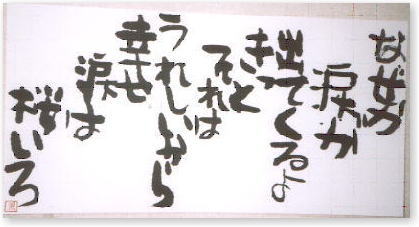 なぜか
涙が
出てくるよ
きっと
それは
うれしいから
幸せ
涙は
桜いろ